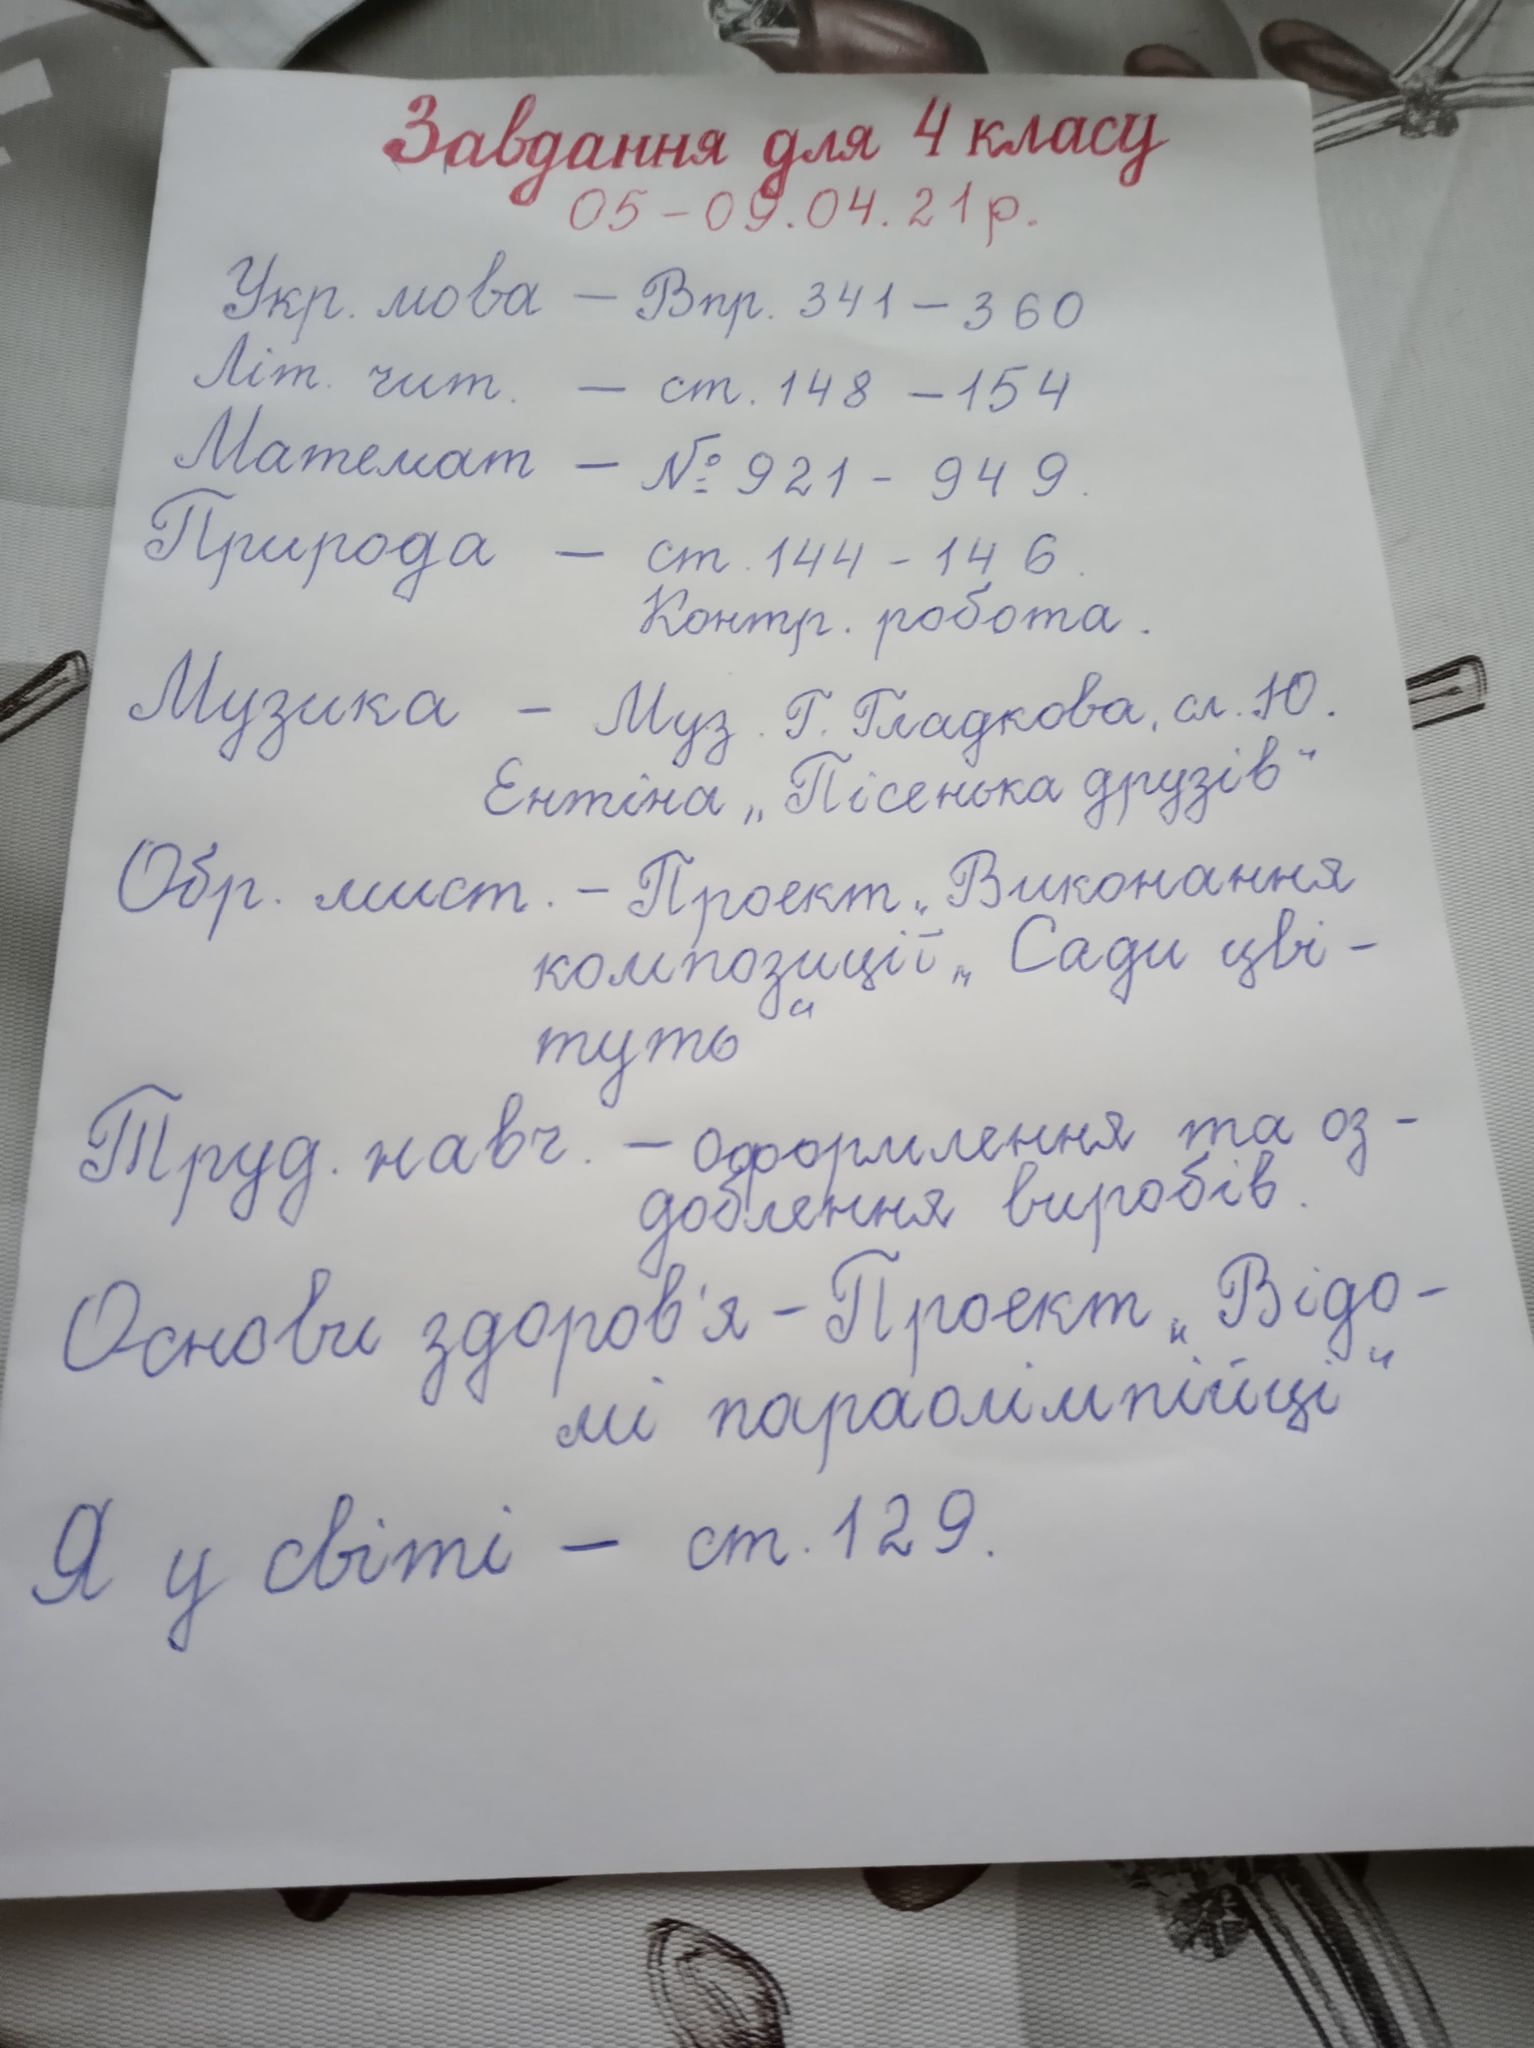 Завдання для 4 класу
05-09.04.21р.
Укр. мова – Впр. 341-360
Літ. чит. – ст. 148-154
Математ – № 921-949.
Природа – ст. 144-146.
Контр. робота.
Музика – Муз. Г. Гладкова, сл. Ю.
Ентіна „Пісенька друзів"
Обр. мист. – Проект „Виконання
композиції „Сади цві-
туть"
Труд. навч. – оформлення та оз-
доблення виробів.
Основи здоров'я – Проект „Відо-
мі параолімпійці"
Я у світі – ст. 129.